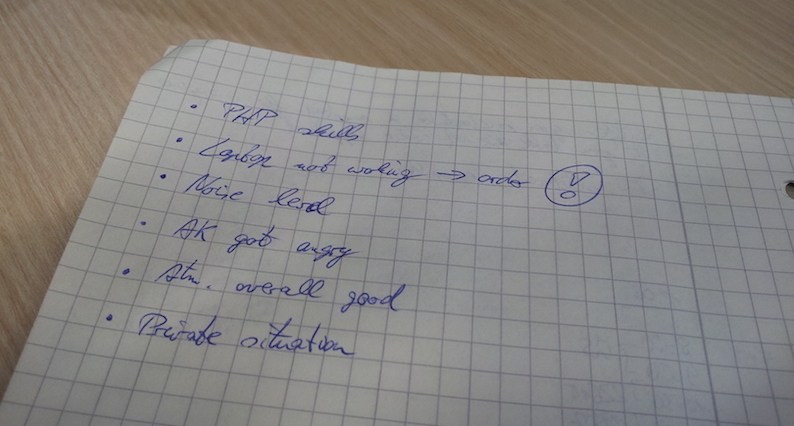 • PHP skills
• Laptop not woking → order !
• Noise level
• AK got angry
• Atm. overall good
• Private situation